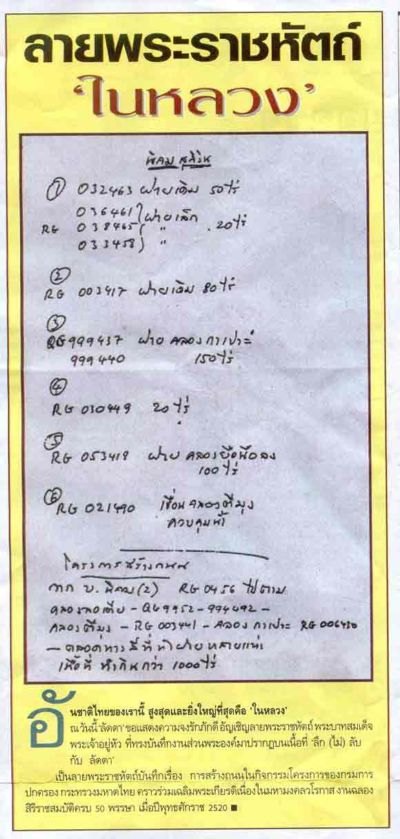 ลายพระราชหัตถ์
‘ในหลวง’
นิคม สุคิริน
① 032463 ฝายเดิม 50 ไร่
036461 ฝายเล็ก
RG 038465 " 20 ไร่
033458 "
②
RG 003417 ฝายเดิม 80 ไร่
③
QG 999437 ฝาย คลองกาเปาะ
999440 150 ไร่
④
RG 030449 20 ไร่
⑤
RG 053419 ฝาย คลอง
100 ไร่
⑥
RG 021490 เขื่อนคลองตีมุง
ควบคุมน้ำ
โครงการสร้างถนน
จาก บ. นิคม (2) RG 0456 ไปตาม
คลอง - QG 9952 - 994492 -
คลองตีมุง - RG 003441 - คลองกาเปาะ RG 006430
- ตลอดทางมีที่ทำฝายหลายแห่ง
เนื้อที่ทำกินกว่า 1000 ไร่
อันชาติไทยของเรานี้ สูงสุดและยิ่งใหญ่ที่สุดคือ ‘ในหลวง’
ณ วันนี้ ‘ลัดดา’ ขอแสดงความจงรักภักดี อัญเชิญลายพระราชหัตถ์ พระบาทสมเด็จ
พระเจ้าอยู่หัว ที่ทรงบันทึกงานส่วนพระองค์มาปรากฏบนเนื้อที่ ‘ลึก (ไม่) ลับ
กับ ลัดดา’
เป็นลายพระราชหัตถ์บันทึกเรื่อง การสร้างถนนในกิจกรรมโครงการของกรมการ
ปกครอง กระทรวงมหาดไทย คราวร่วมเฉลิมพระเกียรติเนื่องในมหามงคลวโรกาส งานฉลอง
สิริราชสมบัติครบ 50 พรรษา เมื่อปีพุทธศักราช 2520 ■